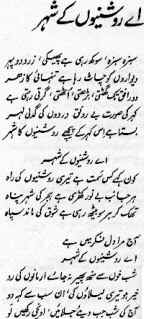 اے روشنیوں کے شہر
سبزہ سبزہ سوکھ رہی ہے پھیکی، زرد دوپہر
دیواروں کو چاٹ رہا ہے تنہائی کا زہر
دور افق تک گھٹتی، بڑھتی، اٹھتی، گرتی رہتی ہے
کہر کی صورت بے رونق دردوں کی گدلی لہر
بستا ہے اس کہر کے پیچھے روشنیوں کا شہر
اے روشنیوں کے شہر
اے روشنیوں کے شہر
کون کہے کس سمت ہے تیری روشنیوں کی راہ
ہر جانب بے نور کھڑی ہے ہجر کی شہر پناہ
تھک کر ہر سو بیٹھ رہی ہے شوق کی ماند سپاہ
آج مرا دل فکر میں ہے
اے روشنیوں کے شہر
شب خوں سے منہ پھیر نہ جائے ارمانوں کی رو
خیر ہو تیری لیلاؤں کی، ان سب سے کہہ دو
آج کی شب جب دیئے جلائیں، اونچی رکھیں لو